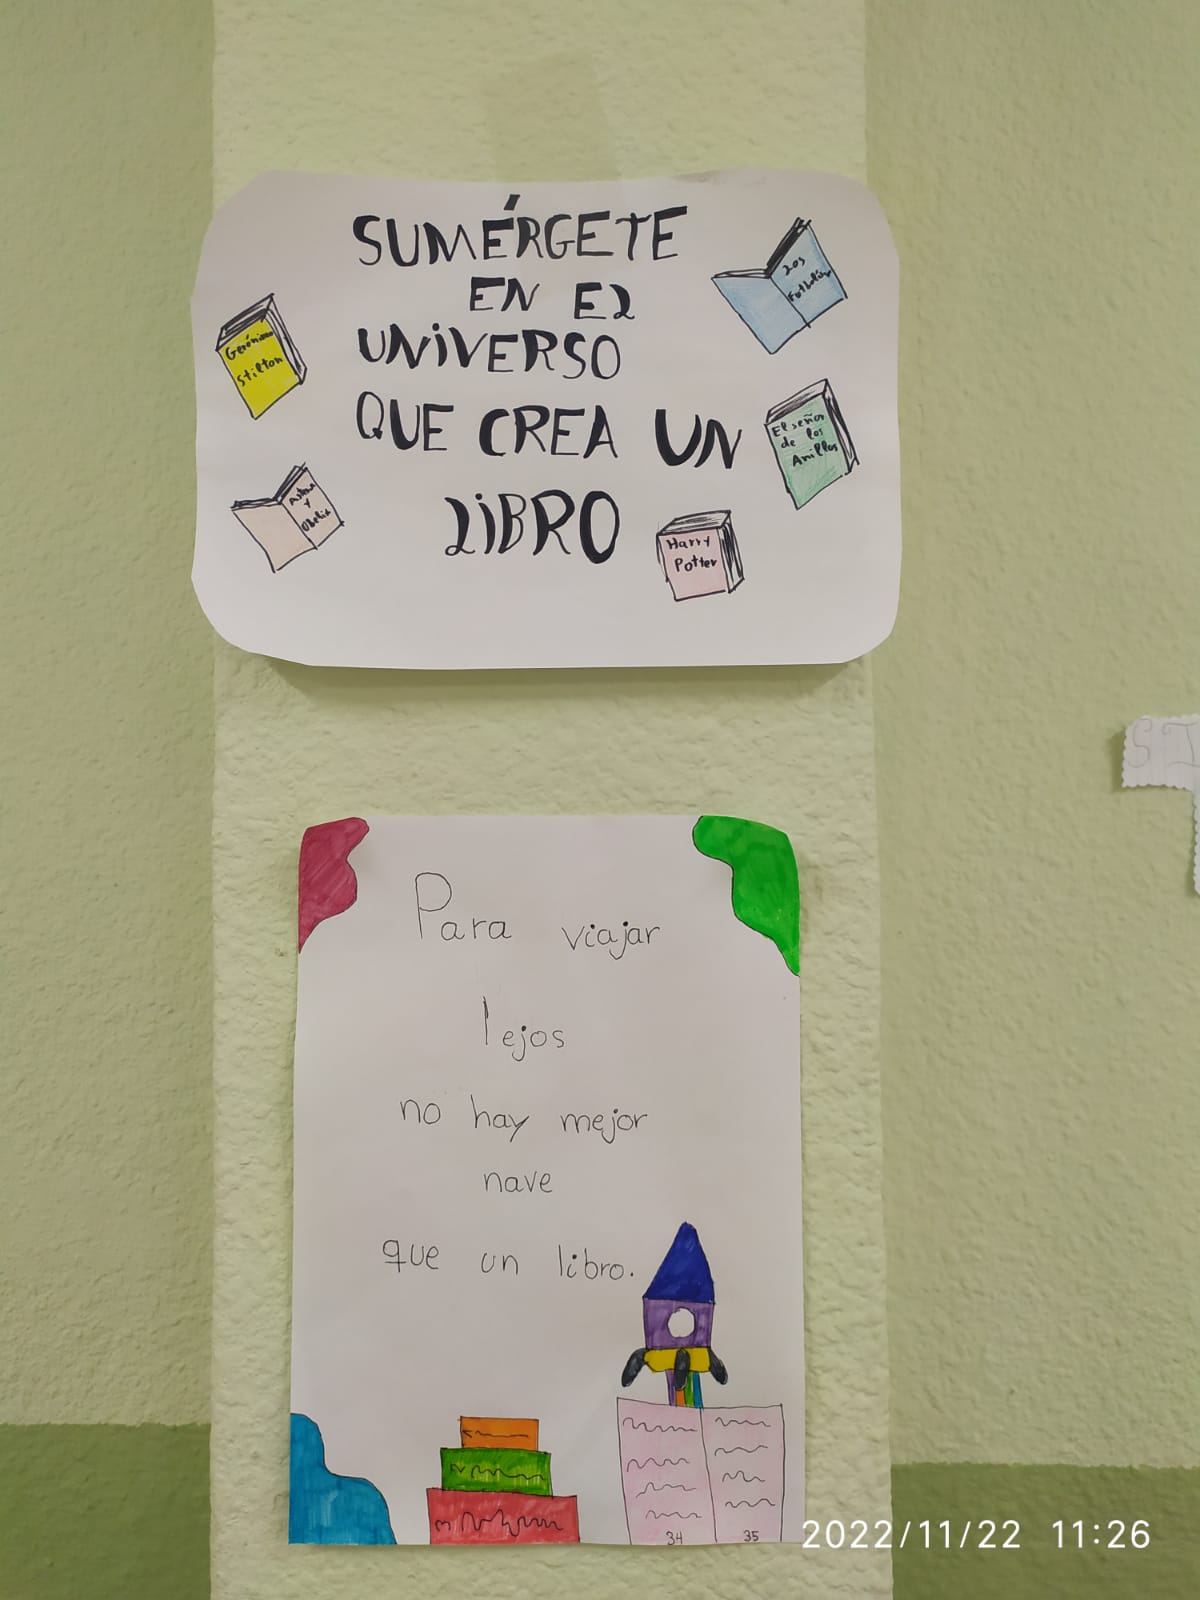 SUMÉRGETE
EN EL
UNIVERSO
QUE CREA UN
LIBRO
Gerónimo
Stilton
Los
Futbolís
El señor
de los
Anillos
y
Obelix
Harry
Potter
Para viajar
lejos
no hay mejor
nave
que un libro.
34
35
2022/11/22 11:26